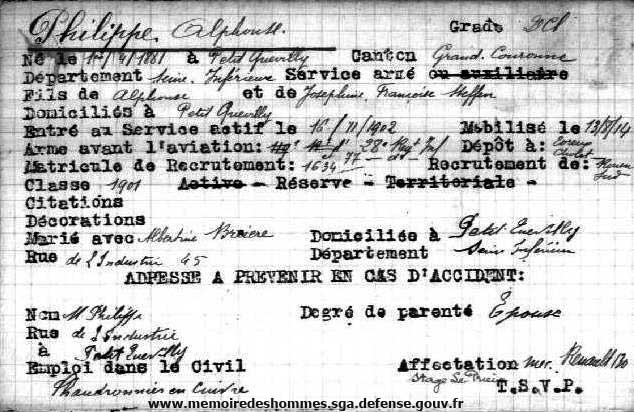 Philippe Alphonse. Grade 2Cl
Né le 1er/4/1881 à Petit Quevilly Canton Grand. Couronne
Département Seine. Inférieure Service armé ou auxiliaire
Fils de Alphonse et de Joséphine, Françoise Steffen
Domiciliés à Petit Quevilly
Entré au Service actif le 16/11/1902 Mobilisé le 13/8/14
Arme avant l'aviation: 28e Regt Inf Dépôt à: Evreux
Matricule de Recrutement: 1634 Recrutement de: Rouen Sud
Classe 1901 Active - Réserve - Territoriale -
Citations
Décorations
Marié avec Albertine Domiciliée à Petit Quevilly
Rue de l Industrie 45 Département Seine Inférieure
ADRESSE A PREVENIR EN CAS D'ACCIDENT:
Nom M Philippe Degré de parenté Epouse
Rue de l Industrie
à Petit Quevilly
Emploi dans le Civil Affectation Renault
Chaudronnier en Cuivre Stage T.S.V.P.
www.memoiredeshommes.sga.defense.gouv.fr